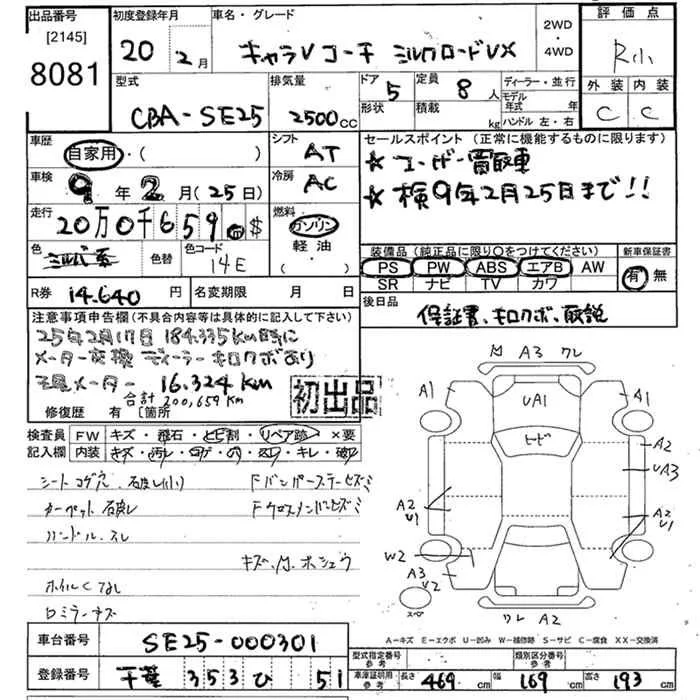 出品番号 [2145] 8081
初度登録年月 20年 2月
車名・グレード キャラVコーチ ミルクロードVX
2WD・4WD
評価点 R小
外装 C 内装 C
型式 CBA-SE25
排気量 2500cc
ドア 形状 5
定員 積載 8人 kg
ディーラー・並行
モデル年式 年
ハンドル 左・右
車歴 自家用・( )
シフト AT
車検 9年2月(25日)
冷房 AC
走行 20万0千659km $
燃料 ガソリン 軽油 ・( )
色 ミルバ系 色替 色コード 14E
セールスポイント (正常に機能するものに限ります)
☆ユーザー買取車
☆検9年2月25日まで!!
装備品(純正品に限り○をつけてください)
PS PW ABS エアB AW
SR ナビ TV カワ
新車保証書 有・無
R券 14.640円 名変期限 月 日
後日品 保証書、キロクボ、取説
注意事項申告欄(不具合内容等は具体的に記入して下さい)
25年2月17日 184.335km時に
メーター交換 ディーラーキロクボあり
現メーター 16.324km
合計 200,659km
初出品
修復歴 有 〔箇所
検査員記入欄
FW キズ・飛石・とび割・リペア跡・×要
内装 キズ・汚レ・コゲ・穴・スレ・キレ・破レ
シートコゲ穴、破レ(小) Fバンパーステーヒズミ
カーペット破レ Fクロスメンバーヒズミ
ハンドルスレ
キズ、M、ボショウ
ホイルCなし
ロミラーキズ
M A3 ワレ
A1 UA1 A1
ヒビ
A2
UA3
A2 U1
A2 U1
W2
A3 U2
スペア
ワレ A2
A-キズ E-エクボ U-凹み W-補修跡 S-サビ C-腐食 XX-交換済
車台番号 SE25-000301
登録番号 千葉 353 ひ 51
型式指定番号 参考
類別区分番号 参考
車庫証明用 参考 長さ 469cm 幅 169cm 高さ 193cm